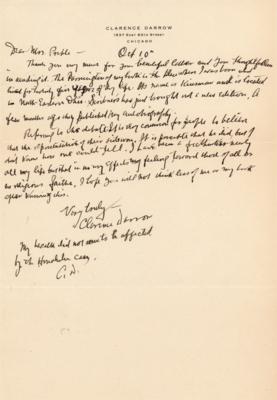 CLARENCE DARROW
1537 East 60th Street
CHICAGO
Dear Mrs. Oct 10th
Thank you very much for your beautiful letter and your thoughtfulness
in sending it. The of my birth is the where I was born and
lived for twenty five years of my life. Its name is Kinsman and is located
in North Eastern Ohio. Scribners has just brought out a new edition. A
few months ago they published my Autobiography.
Referring to the debate, it is very common for people to believe
that the of their . It is possible that he did but I
did not know how one could tell. I have been a nearly
all my life but that in no way affects my feeling toward those of all or
no religious faiths. I hope you will not think less of me or my book
after knowing this.
Very truly
Clarence Darrow
My health did not seem to be affected
by the Honolulu case.
C. D.